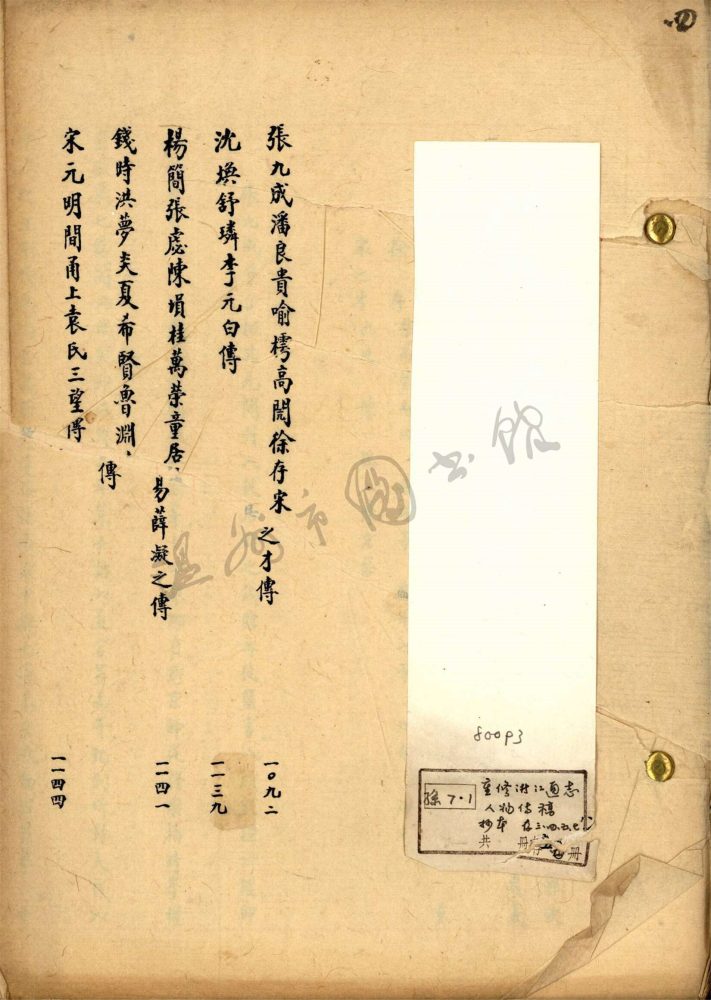 張九成潘良貴喻樗高閌徐存宋之才傳
一〇九二
沈煥舒璘李元白傳
一一三九
楊簡張虙陳塤桂萬榮童居易薛凝之傳
一一四一
錢時洪夢炎夏希賢魯淵傳
宋元明間甬上袁氏三望傳
一一四四
温州市图书馆
80093
孫7·1
重修浙江通志
人物传稿
抄本 存三.四.五.七
共 冊存 冊